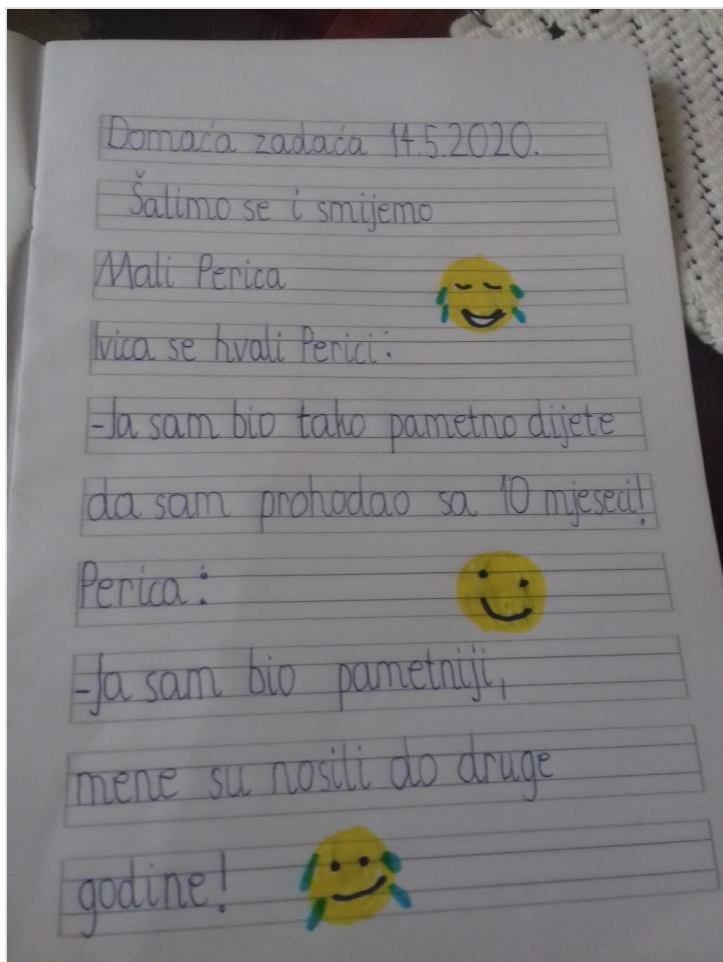 Domaća zadaća 14.5.2020.
Šalimo se i smijemo
Mali Perica
Ivica se hvali Perici:
-Ja sam bio tako pametno dijete
da sam prohodao sa 10 mjeseci!
Perica:
-Ja sam bio pametniji,
mene su nosili do druge
godine!